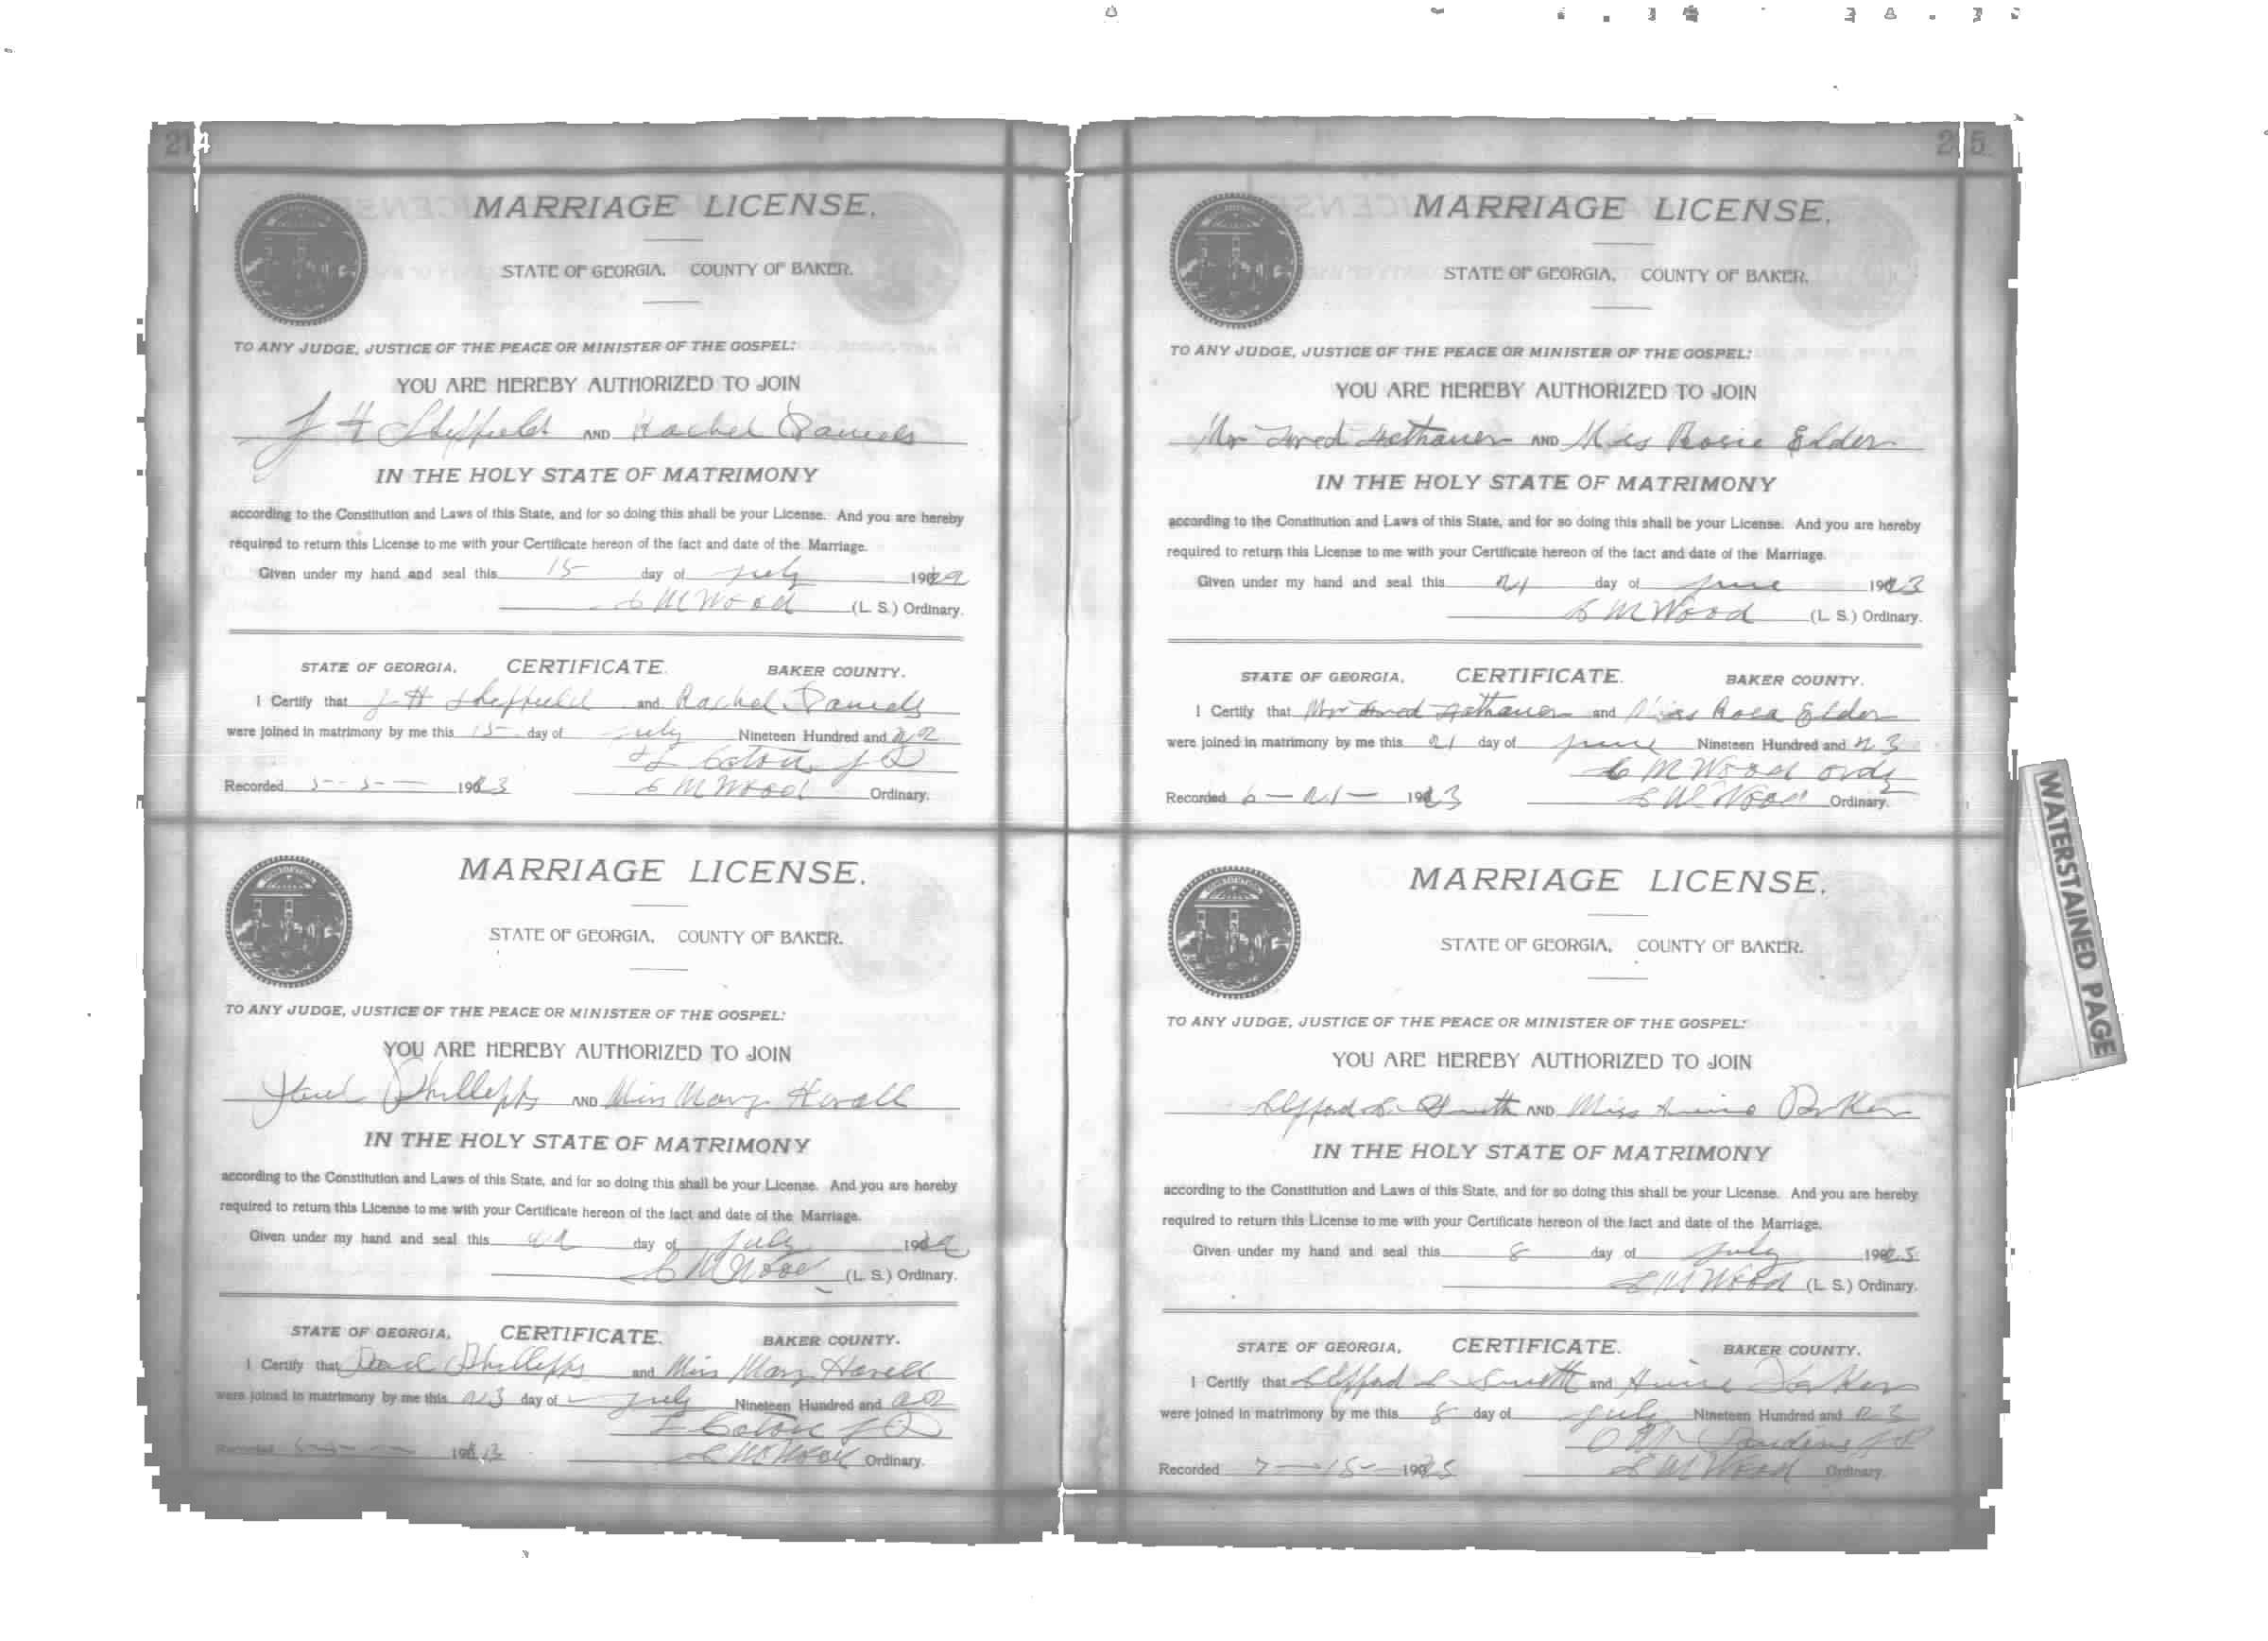 214
MARRIAGE LICENSE.
STATE OF GEORGIA, COUNTY OF BAKER.
TO ANY JUDGE, JUSTICE OF THE PEACE OR MINISTER OF THE GOSPEL:
YOU ARE HEREBY AUTHORIZED TO JOIN
J H Sheffield AND Rachel Daniels
IN THE HOLY STATE OF MATRIMONY
according to the Constitution and Laws of this State, and for so doing this shall be your License. And you are hereby
required to return this License to me with your Certificate hereon of the fact and date of the Marriage.
Given under my hand and seal this 15 day of July 1922
M Wood (L. S.) Ordinary.
STATE OF GEORGIA, CERTIFICATE. BAKER COUNTY.
I Certify that J H Sheffield and Rachel Daniels
were joined in matrimony by me this 15 day of July Nineteen Hundred and 22
Recorded 5-5- 1923 M Wood Ordinary.
MARRIAGE LICENSE.
STATE OF GEORGIA, COUNTY OF BAKER.
TO ANY JUDGE, JUSTICE OF THE PEACE OR MINISTER OF THE GOSPEL:
YOU ARE HEREBY AUTHORIZED TO JOIN
Phillipps AND Miss Mary
IN THE HOLY STATE OF MATRIMONY
according to the Constitution and Laws of this State, and for so doing this shall be your License. And you are hereby
required to return this License to me with your Certificate hereon of the fact and date of the Marriage.
Given under my hand and seal this 22 day of July 1922
M Wood (L. S.) Ordinary.
STATE OF GEORGIA, CERTIFICATE. BAKER COUNTY.
I Certify that Phillipps and Miss Mary
were joined in matrimony by me this 23 day of July Nineteen Hundred and 22
Recorded 1923 M Wood Ordinary.
215
MARRIAGE LICENSE.
STATE OF GEORGIA, COUNTY OF BAKER.
TO ANY JUDGE, JUSTICE OF THE PEACE OR MINISTER OF THE GOSPEL:
YOU ARE HEREBY AUTHORIZED TO JOIN
Mr Fred AND Miss Rosie Elder
IN THE HOLY STATE OF MATRIMONY
according to the Constitution and Laws of this State, and for so doing this shall be your License. And you are hereby
required to return this License to me with your Certificate hereon of the fact and date of the Marriage.
Given under my hand and seal this 21 day of June 1923
M Wood (L. S.) Ordinary.
STATE OF GEORGIA, CERTIFICATE. BAKER COUNTY.
I Certify that Mr Fred and Miss Rosa Elder
were joined in matrimony by me this 21 day of June Nineteen Hundred and 23
M Wood ordy
Recorded 6-21- 1923 M Wood Ordinary.
MARRIAGE LICENSE.
STATE OF GEORGIA, COUNTY OF BAKER.
TO ANY JUDGE, JUSTICE OF THE PEACE OR MINISTER OF THE GOSPEL:
YOU ARE HEREBY AUTHORIZED TO JOIN
Smith AND Miss
IN THE HOLY STATE OF MATRIMONY
according to the Constitution and Laws of this State, and for so doing this shall be your License. And you are hereby
required to return this License to me with your Certificate hereon of the fact and date of the Marriage.
Given under my hand and seal this 8 day of July 1923
M Wood (L. S.) Ordinary.
STATE OF GEORGIA, CERTIFICATE. BAKER COUNTY.
I Certify that Smith and
were joined in matrimony by me this 8 day of July Nineteen Hundred and 23
Recorded 7-15- 1923 M Wood Ordinary
WATERSTAINED PAGE